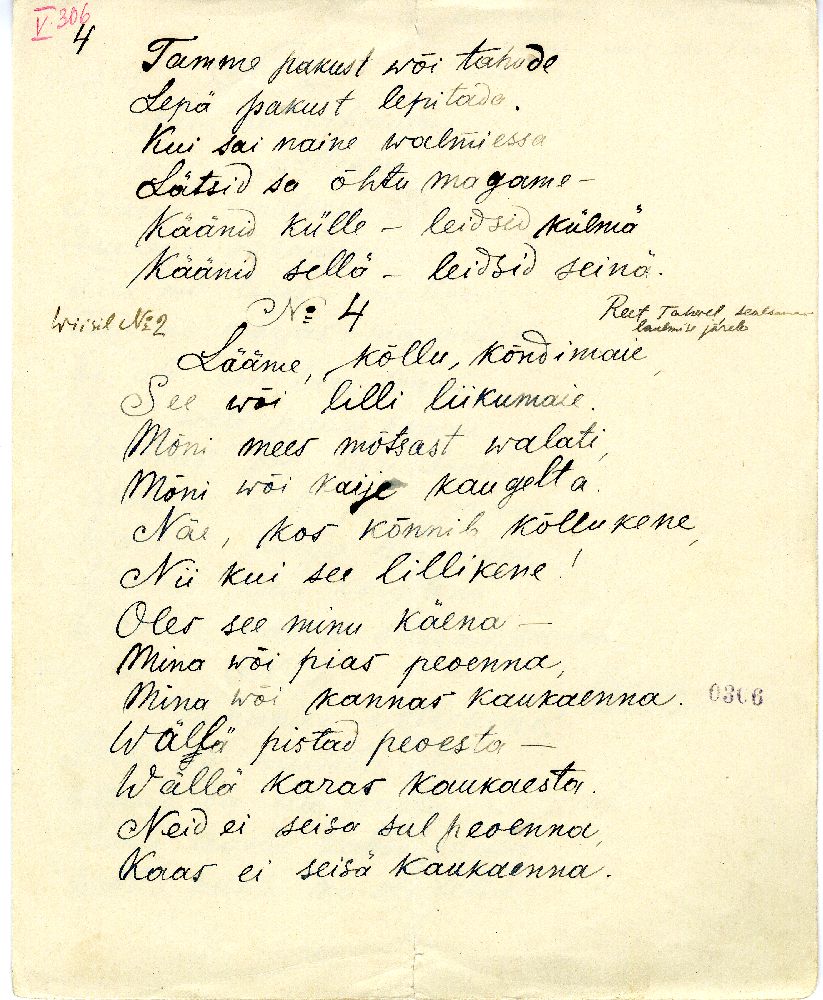 V. 306
4
Tamme pakust wõi tahude
Lepä pakust lepitada.
Kui sai naine walmiessa
Lätsid sa õhtu magame –
Käänid külle – leidsid külmä
Käänid sellä – leidsid seinä.
Wiisil № 2
№ 4
Reet Tahvel sealsamas
laulmise järele
Lääme, kõllu, kõndimaie,
See wõi lilli liikumaie.
Mõni mees mõtsast walati,
Mõni wõi kaije kaugelta.
Näe, kos kõnnib kõllukene,
Nii kui see lillikene!
Oles see minu käena –
Mina wõi pias peoenna,
Mina wõi kannas kaukaenna.
0306
Wällä pistad peoesta –
Wällä karas kaukaesta.
Neid ei seisa sul peoenna,
Kaas ei seisä kaukaenna.